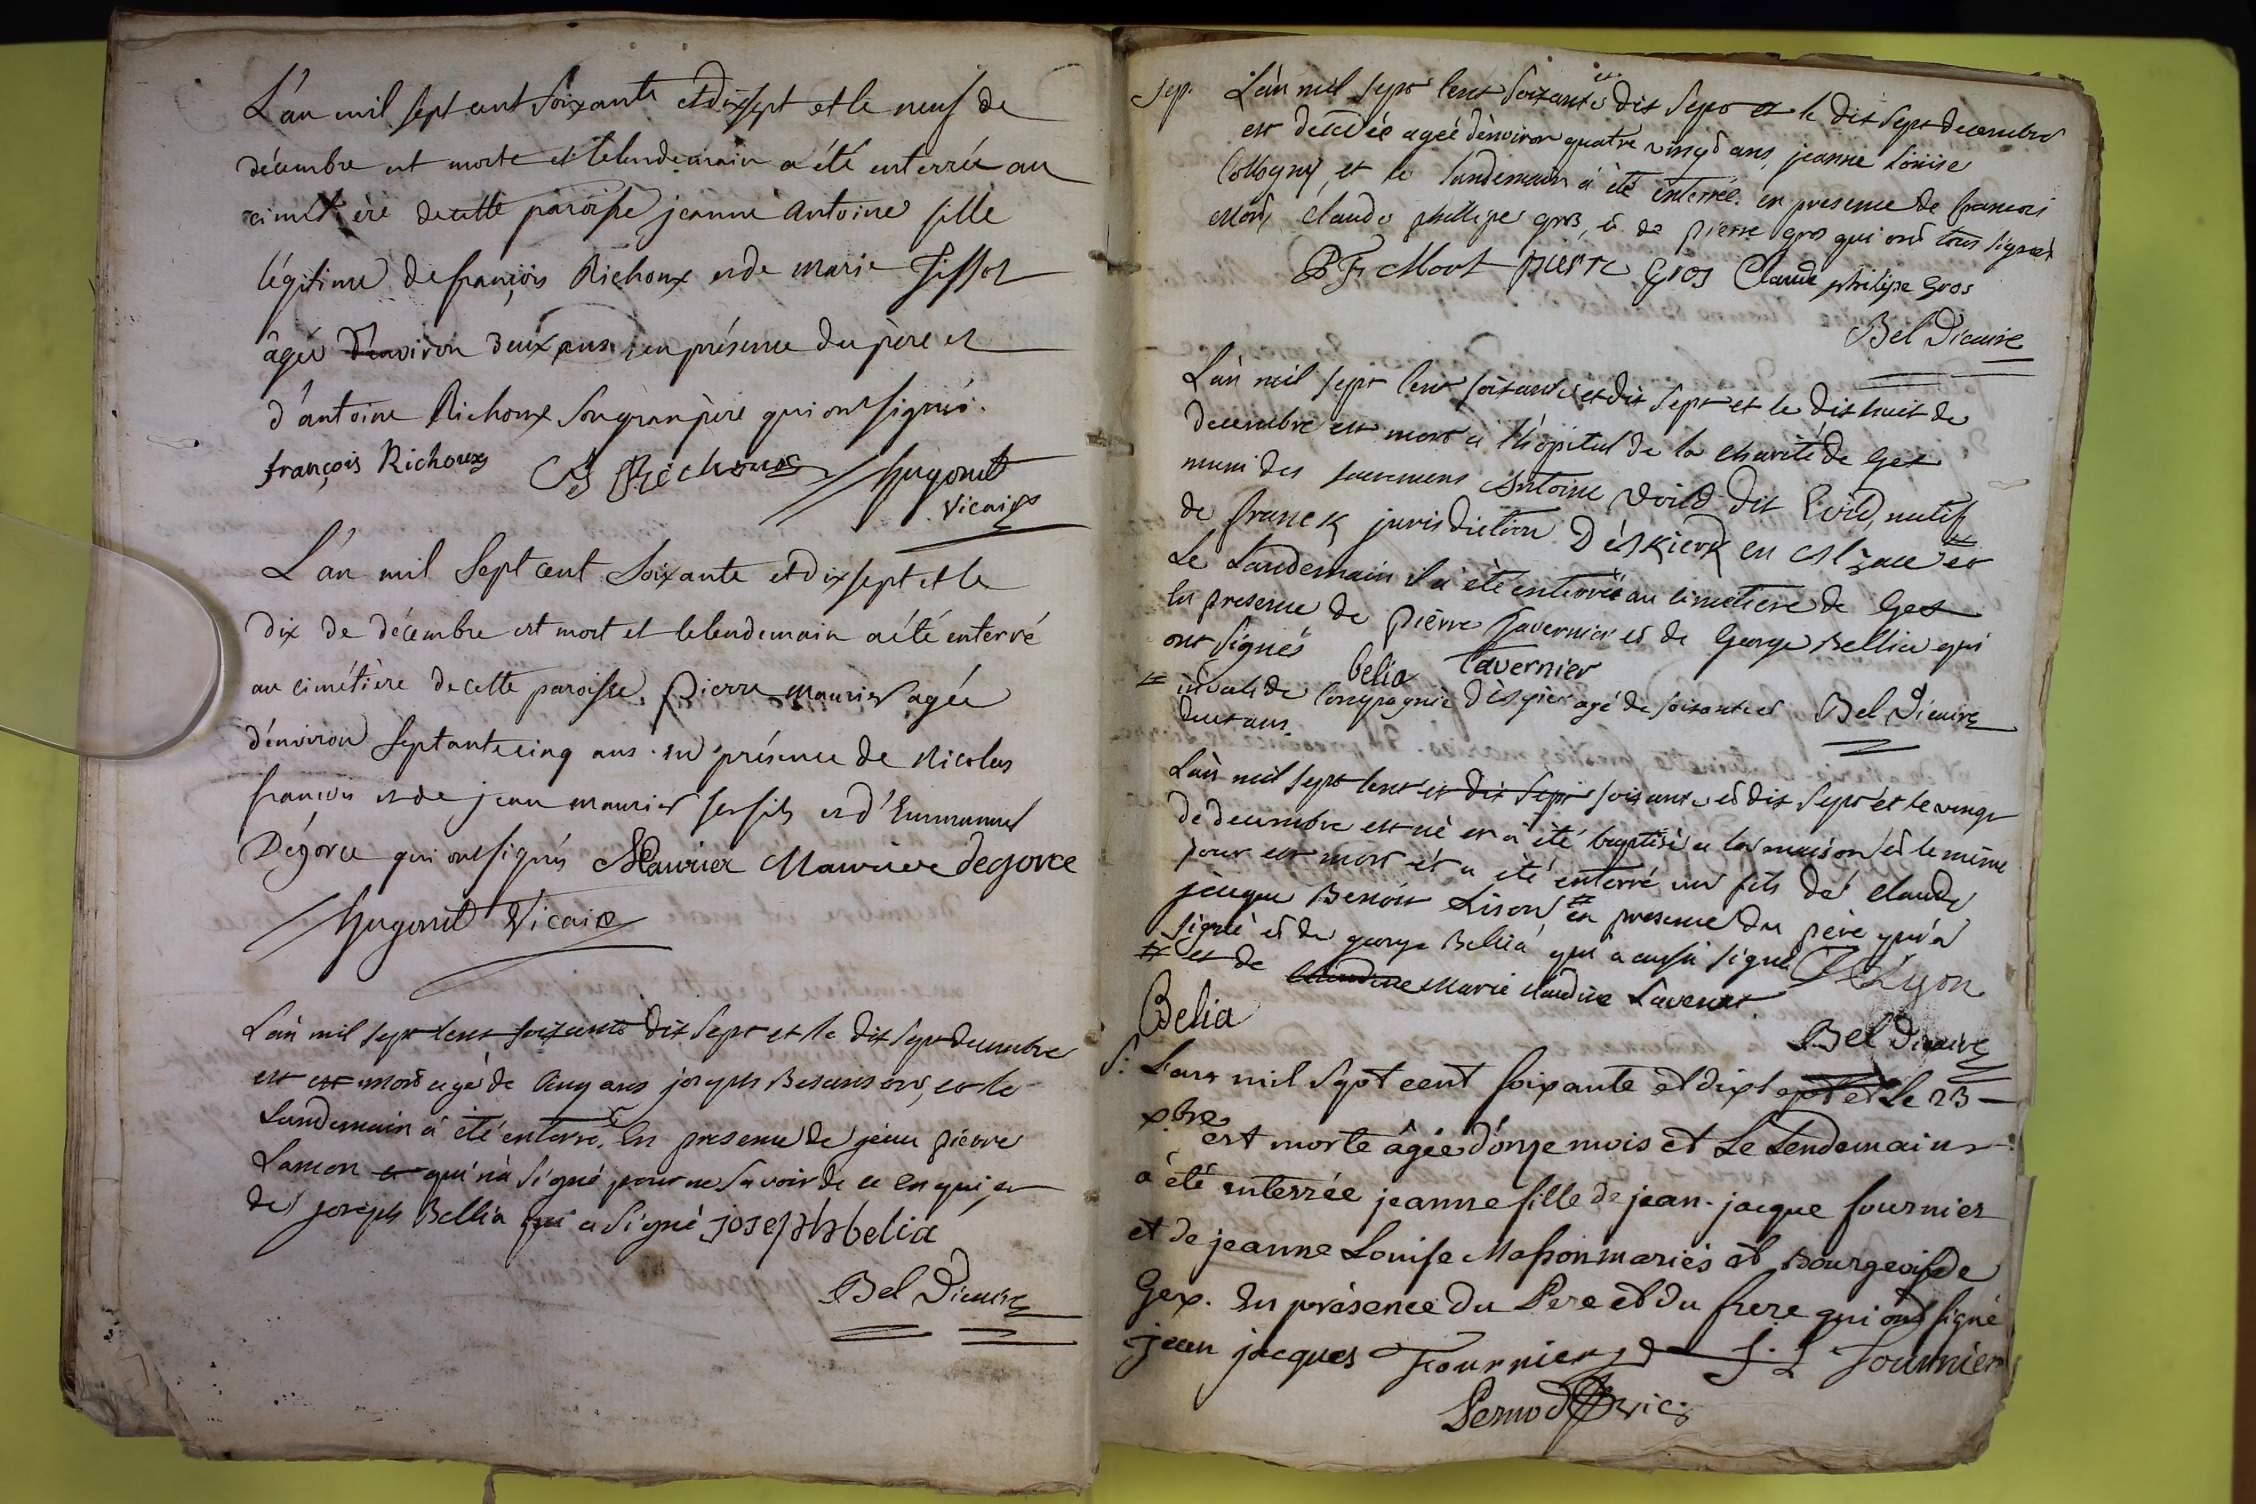 L'an mil sept cent soixante et dix sept et le neuf de
décembre est morte et le lendemain a été enterrée au
cimetière de cette paroisse jeanne Antoine fille
légitime de françois Richoux et de marie Tissot
âgée d'environ deux ans, en présence du père et
d'antoine Richoux son granpère qui ont signés.
françois Richoux Richoux Hugonet
Vicaire
L'an mil Sept cent Soixante et dix sept et le
dix de décembre est mort et le lendemain a été enterré
au cimétière de cette paroisse, Pierre maurier agée
d'environ Septante cinq ans. en présence de Nicolas
françois et de jean maurier ses fils et d'Emmanuel
Dégorce qui ont signés Maurier Maurier degorce
Hugonet Vicaire
L'an mil sept cent soixante dix sept et le dix sept decembre
est est mort agé de cinq ans joseph Besanson, et le
Landemain à été enterré, En presence de jean pierre
Lanson et qui n'à signé pour ne savoir de ce enquis, et
de joseph Bellia qui a signé joseph belia
Bel Vicaire
sep. L'an mil sept cent soixante et dix sept et le dix sept decembre
est decedée agée d'environ quatre vingt ans, jeanne Louise
Collogny, et le landemain à été enterrée. en presence de francois
Mort, Claude phillipe gros, et de pierre gros qui ont tous signés
P F Mort pierre Gros Claude philipe Gros
Bel Vicaire
L'an mil sept cent soixante et dix sept et le dix huit de
decembre est mort à l'hôpital de la charité de Gex
muni des sacremens Antoine Voild dit Evild, natif
de franck jurisdiction D'éskierk en Alzace et
Le Landemain il a été enterré au cimetiere de Gex
En presence de pierre Tavernier et de George Bellia qui
ont signés belia Tavernier
invalide Compagnie d'Esgrier agé de soixante et Bel Vicaire
deux ans.
L'an mil sept cent et dix sept soixante et dix sept et le vingt
de decembre est né et a été baptisé à la maison et le même
jour est mort et a été enterré un fils de Claude
jacque Benoit Lison en presence du père qui a
signé et de george Bellia qui a aussi signé Lyon
et de Claudine Marie Claudine Lavenat.
Belia Bel Vicaire
S: L'ans mil sept cent soixante et dix sept et Le 23
xbre est morte âgée d'onze mois et Le Lendemain
à été enterrée jeanne fille de jean-jacque fournier
et de jeanne Louise Masson mariés et Bourgeois de
Gex. En présence du Pere et du frere qui ont signé
jean jacques Fournier J. L Fournier
Pernod vic: